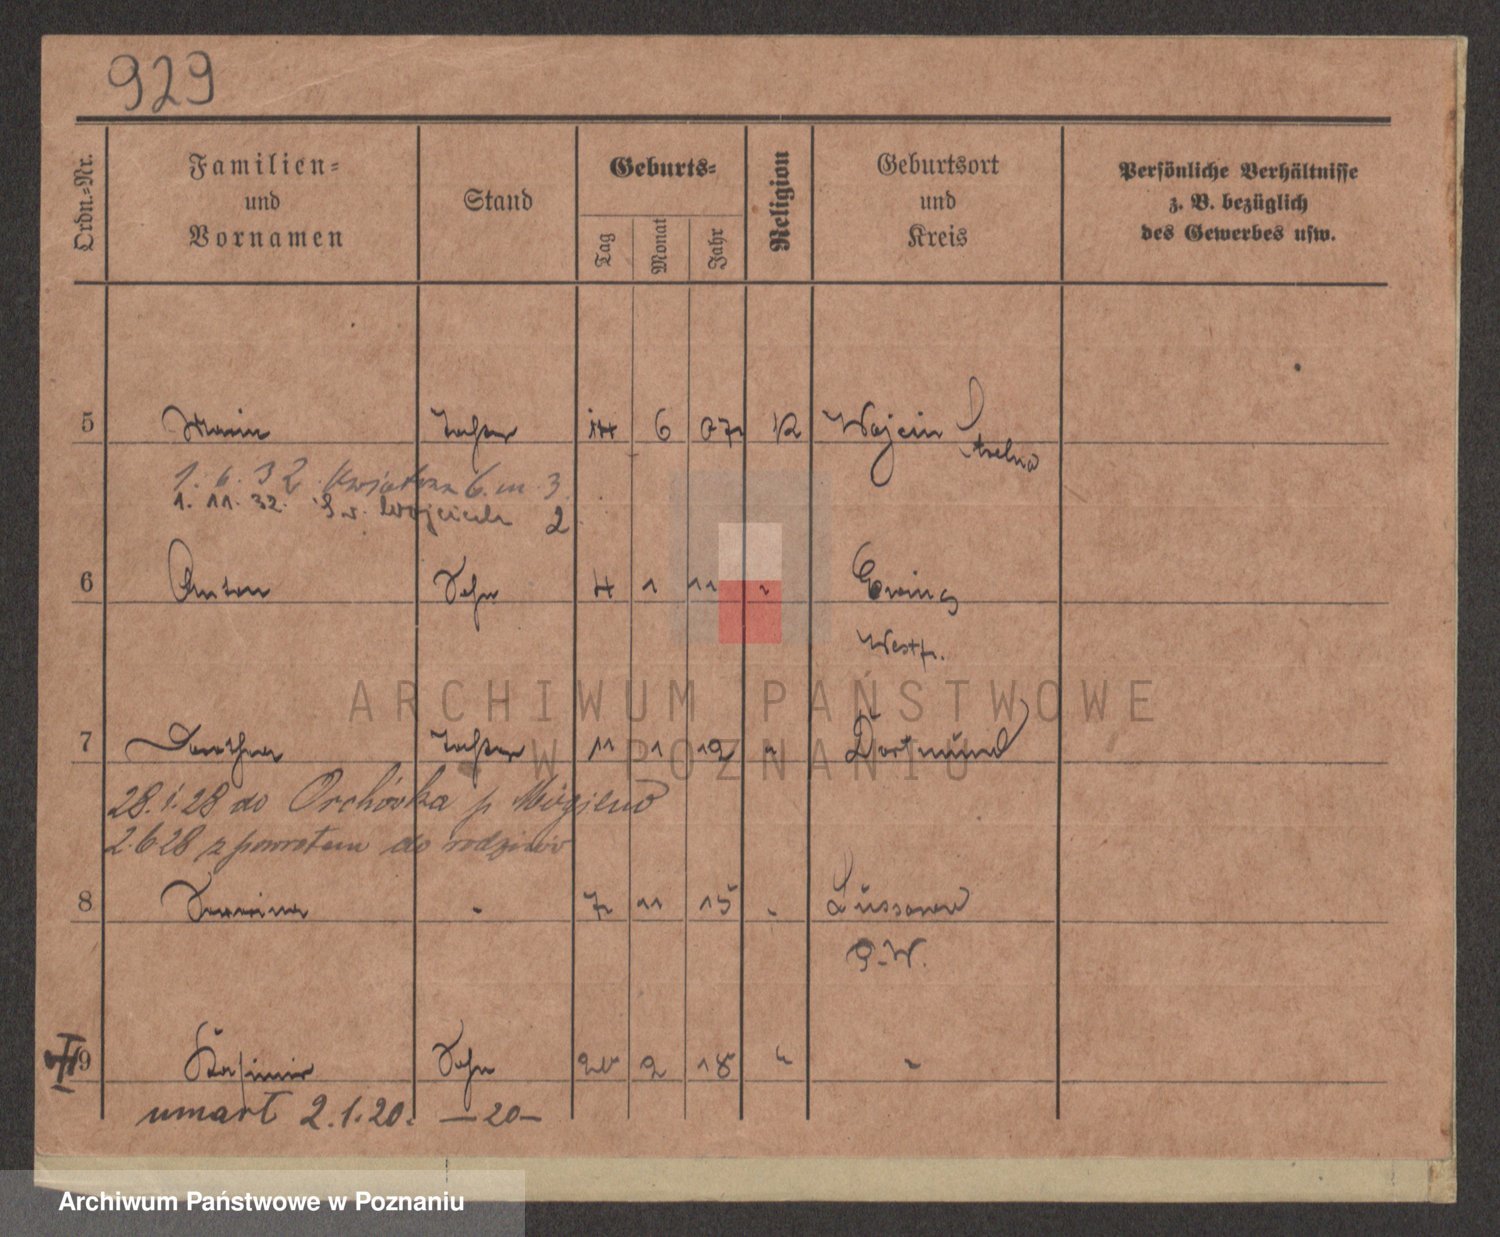 929
Ordn.=Nr.
Familien=
und
Vornamen
Stand
Geburts=
Tag
Monat
Jahr
Religion
Geburtsort
und
Kreis
Persönliche Verhältnisse
z. B. bezüglich
des Gewerbes usw.
5 Marie Tochter 14 6 07 K Wojcin Strelno
1. 6. 32 6 m. 3
1. 11. 32. Św. Wojciech 2
6 Anton Sohn 4 1 11 Eving
Westf.
7 Dorothea Tochter 11 1 12 Dortmund
28.1.28 do Orchówka p. Mogilno
2.6 28 z powrotem do rodziców
8 - 7 11 15 -
P.-W.
9 Kasimir Sohn 20 2 18 -
umarł 2.1.20. — 20 —
ARCHIWUM PAŃSTWOWE
W POZNANIU
Archiwum Państwowe w Poznaniu